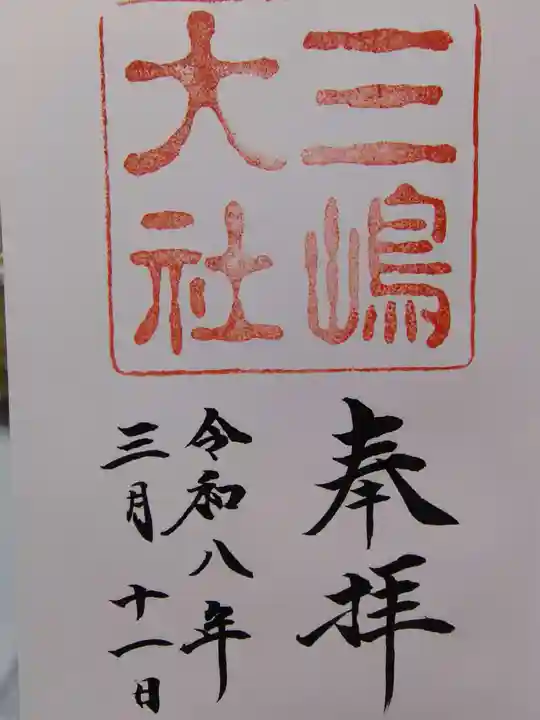 三嶋
大社
奉拝
令和八年
三月十一日